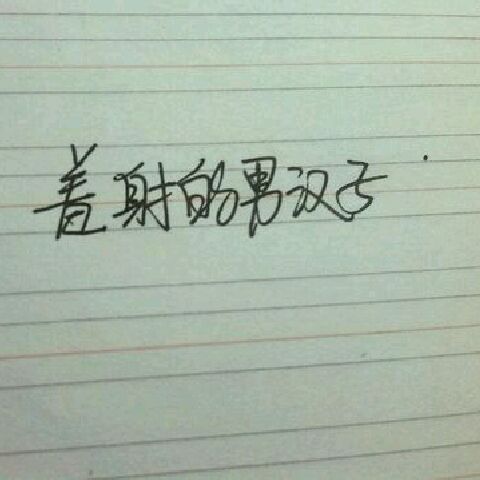 羞射的男汉子